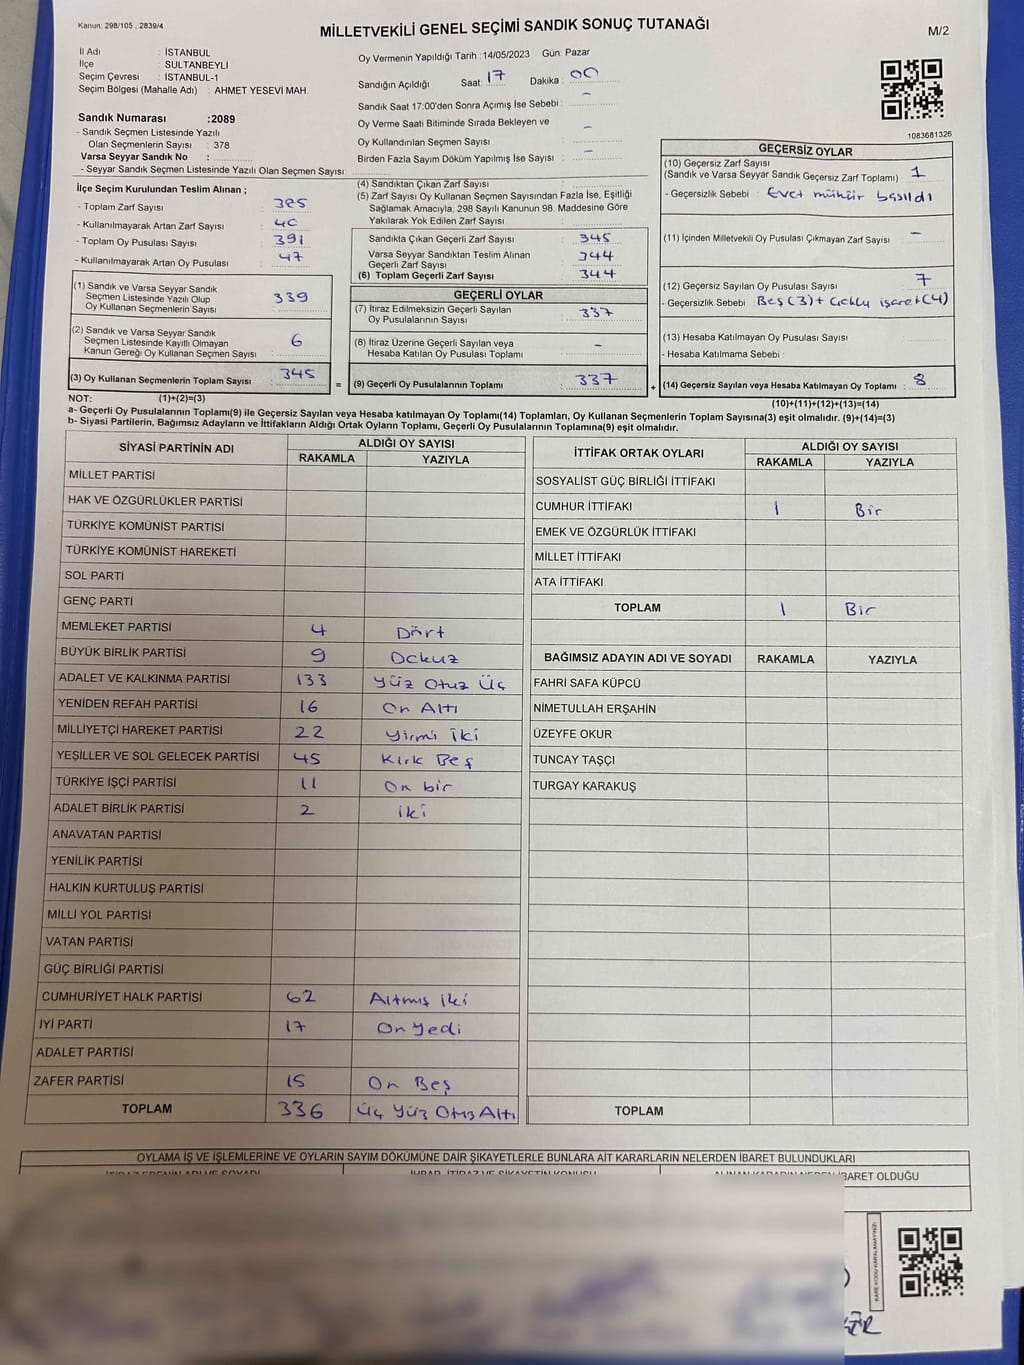 Kanun: 298/105 , 2839/4
MİLLETVEKİLİ GENEL SEÇİMİ SANDIK SONUÇ TUTANAĞI
M/2
İl Adı : İSTANBUL
İlçe : SULTANBEYLİ
Seçim Çevresi : İSTANBUL-1
Seçim Bölgesi (Mahalle Adı) : AHMET YESEVİ MAH.
Sandık Numarası :2089
- Sandık Seçmen Listesinde Yazılı
Olan Seçmenlerin Sayısı : 378
Varsa Seyyar Sandık No :
- Seyyar Sandık Seçmen Listesinde Yazılı Olan Seçmen Sayısı:
Oy Vermenin Yapıldığı Tarih :14/05/2023 Gün: Pazar
Sandığın Açıldığı Saat: 17 Dakika : 00
Sandık Saat 17:00'den Sonra Açımış İse Sebebi : -
Oy Verme Saati Bitiminde Sırada Bekleyen ve
Oy Kullandırılan Seçmen Sayısı : -
Birden Fazla Sayım Döküm Yapılmış İse Sayısı : -
1083681326
İlçe Seçim Kurulundan Teslim Alınan ;
- Toplam Zarf Sayısı : 385
- Kullanılmayarak Artan Zarf Sayısı : 40
- Toplam Oy Pusulası Sayısı : 391
- Kullanılmayarak Artan Oy Pusulası : 47
(1) Sandık ve Varsa Seyyar Sandık
Seçmen Listesinde Yazılı Olup
Oy Kullanan Seçmenlerin Sayısı : 339
(2) Sandık ve Varsa Seyyar Sandık
Seçmen Listesinde Kayıtlı Olmayan
Kanun Gereği Oy Kullanan Seçmen Sayısı : 6
(3) Oy Kullanan Seçmenlerin Toplam Sayısı : 345
(4) Sandıktan Çıkan Zarf Sayısı :
(5) Zarf Sayısı Oy Kullanan Seçmen Sayısından Fazla İse, Eşitliği
Sağlamak Amacıyla, 298 Sayılı Kanunun 98. Maddesine Göre
Yakılarak Yok Edilen Zarf Sayısı :
Sandıkta Çıkan Geçerli Zarf Sayısı : 345
Varsa Seyyar Sandıktan Teslim Alınan
Geçerli Zarf Sayısı : 344
(6) Toplam Geçerli Zarf Sayısı : 344
GEÇERLİ OYLAR
(7) İtiraz Edilmeksizin Geçerli Sayılan
Oy Pusulalarının Sayısı : 337
(8) İtiraz Üzerine Geçerli Sayılan veya
Hesaba Katılan Oy Pusulası Toplamı : -
= (9) Geçerli Oy Pusulalarının Toplamı : 337
GEÇERSİZ OYLAR
(10) Geçersiz Zarf Sayısı
(Sandık ve Varsa Seyyar Sandık Geçersiz Zarf Toplamı) : 1
- Geçersizlik Sebebi : Evet mühür basıldı
(11) İçinden Milletvekili Oy Pusulası Çıkmayan Zarf Sayısı : -
(12) Geçersiz Sayılan Oy Pusulası Sayısı : 7
- Geçersizlik Sebebi : Boş(3)+ işaret(4)
(13) Hesaba Katılmayan Oy Pusulası Sayısı :
- Hesaba Katılmama Sebebi :
+ (14) Geçersiz Sayılan veya Hesaba Katılmayan Oy Toplamı : 8
NOT: (1)+(2)=(3) (10)+(11)+(12)+(13)=(14)
a- Geçerli Oy Pusulalarının Toplamı(9) ile Geçersiz Sayılan veya Hesaba katılmayan Oy Toplamı(14) Toplamları, Oy Kullanan Seçmenlerin Toplam Sayısına(3) eşit olmalıdır. (9)+(14)=(3)
b- Siyasi Partilerin, Bağımsız Adayların ve İttifakların Aldığı Ortak Oyların Toplamı, Geçerli Oy Pusulalarının Toplamına(9) eşit olmalıdır.
SİYASİ PARTİNİN ADI ALDIĞI OY SAYISI
RAKAMLA YAZIYLA
MİLLET PARTİSİ
HAK VE ÖZGÜRLÜKLER PARTİSİ
TÜRKİYE KOMÜNİST PARTİSİ
TÜRKİYE KOMÜNİST HAREKETİ
SOL PARTİ
GENÇ PARTİ
MEMLEKET PARTİSİ 4 Dört
BÜYÜK BİRLİK PARTİSİ 9 Dokuz
ADALET VE KALKINMA PARTİSİ 133 Yüz Otuz Üç
YENİDEN REFAH PARTİSİ 16 On Altı
MİLLİYETÇİ HAREKET PARTİSİ 22 Yirmi İki
YEŞİLLER VE SOL GELECEK PARTİSİ 45 Kırk Beş
TÜRKİYE İŞÇİ PARTİSİ 11 On bir
ADALET BİRLİK PARTİSİ 2 iki
ANAVATAN PARTİSİ
YENİLİK PARTİSİ
HALKIN KURTULUŞ PARTİSİ
MİLLİ YOL PARTİSİ
VATAN PARTİSİ
GÜÇ BİRLİĞİ PARTİSİ
CUMHURİYET HALK PARTİSİ 62 Altmış iki
İYİ PARTİ 17 On Yedi
ADALET PARTİSİ
ZAFER PARTİSİ 15 On Beş
TOPLAM 336 Üç Yüz Otuz Altı
İTTİFAK ORTAK OYLARI ALDIĞI OY SAYISI
RAKAMLA YAZIYLA
SOSYALİST GÜÇ BİRLİĞİ İTTİFAKI
CUMHUR İTTİFAKI 1 Bir
EMEK VE ÖZGÜRLÜK İTTİFAKI
MİLLET İTTİFAKI
ATA İTTİFAKI
TOPLAM 1 Bir
BAĞIMSIZ ADAYIN ADI VE SOYADI RAKAMLA YAZIYLA
FAHRİ SAFA KÜPCÜ
NİMETULLAH ERŞAHİN
ÜZEYFE OKUR
TUNCAY TAŞÇI
TURGAY KARAKUŞ
TOPLAM
OYLAMA İŞ VE İŞLEMLERİNE VE OYLARIN SAYIM DÖKÜMÜNE DAİR ŞİKAYETLERLE BUNLARA AİT KARARLARIN NELERDEN İBARET BULUNDUKLARI
İTİRAZ EDENİN ADI VE SOYADI İHBAR, İTİRAZ VE ŞİKAYETİN KONUSU ALINAN KARARIN NEDEN İBARET OLDUĞU
KARE KODU KARALAMAYINIZ!